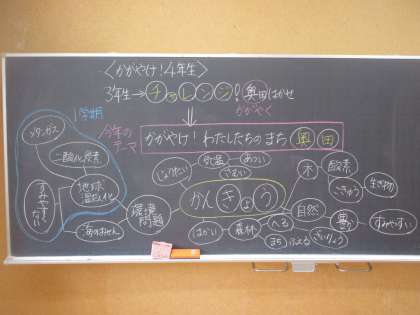 〈かがやけ！4年生〉
3年生→チャレンジ！奥田はかせ
かがやく
1学期
今年の
テーマ
かがやけ！わたしたちのまち奥田
メタンガス
二酸化炭素
地球
温暖化
すみやすくない
海のおせん
環境
問題
気温
あつい
さむい
かんきょう
木
酸素
ちきゅう
生き物
自然
すみやすい
はかい
森林
へる
まち
ふえる